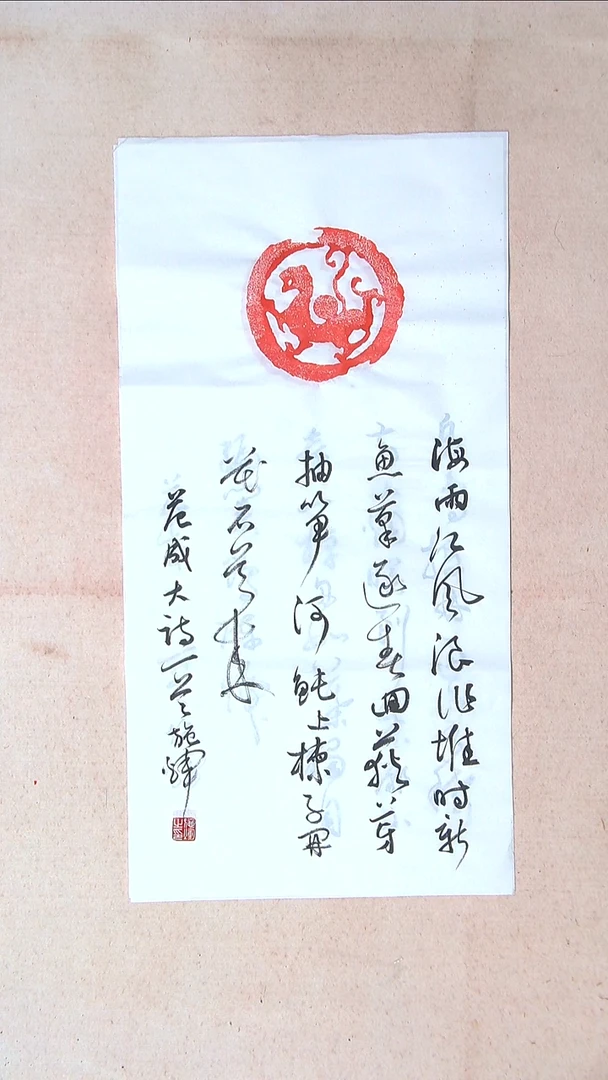 海雨江风浪作堆时新
鱼菜逐春回荻芽
抽笋河鲀上楝子开
花石首来
范成大诗一首施